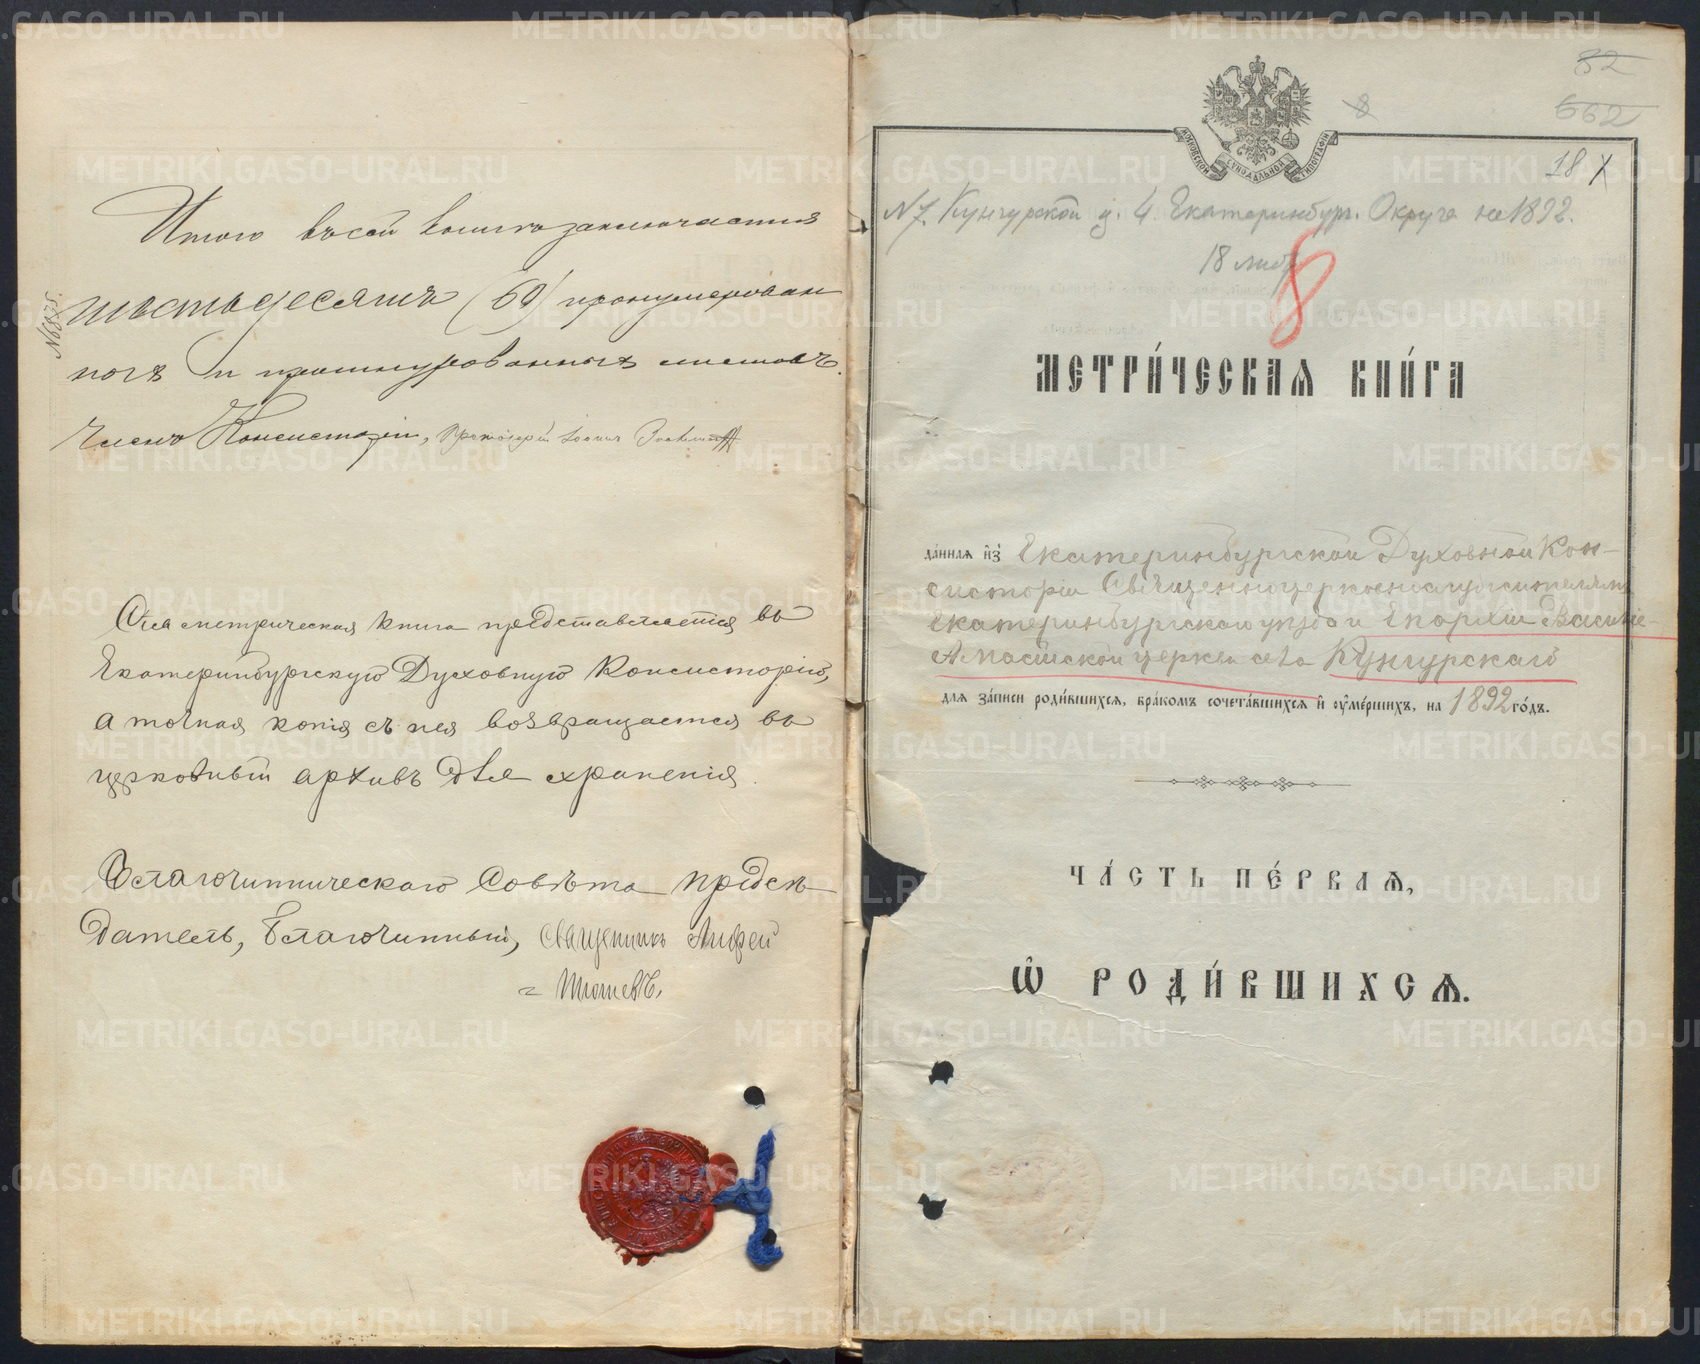 Итого въ сей книгѣ заключается
шестьдесятъ (60) пронумерован
ныхъ и прошнурованныхъ листовъ.
Членъ Консисторіи, Протоіерей Іоаннъ
Сія метрическая книга представляется въ
Екатеринбургскую Духовную Консисторію,
а точная копія съ нея возвращается въ
церковный архивъ для храненія.
Благочинническаго Совѣта предсѣ
датель, Благочинный, священникъ
82
662
8
18
МОСКОВСКОЙ СѴНОДАЛЬНОЙ ТИПОГРАФІИ
N 7. Кунгурской ц. 4. Екатеринбург. Округа на 1892.
18 лист
8
МЕТРИ́ЧЕСКАѦ КНИ́ГА
да́ннаѧ и҆зъ Екатеринбургской Духовной Кон-
систоріи Священноцерковнослужителямъ
Екатеринбургскаго уѣзда и Епархіи Василіе-
Амасійской церкви села Кунгурскаго
для за́писи роди́вшихсѧ, бра́комъ сочета́вшихсѧ и҆ ѹ҆ме́ршихъ, на 1892 го́дъ.
ЧА́СТЬ ПЕ́РВАѦ,
Ѡ҆ РОДИ́ВШИХСѦ.
METRIKI.GASO-URAL.RU